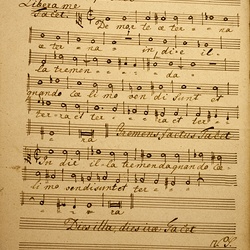 Libera me
Tacet. De mor te æ ter na
æ ter na in, di e il
la tremen da
quando cœ li mo ven di sunt et
ter ra et ter ra et ter
ra Tremens factus Tacet
In die il-la tremenda quando cœ
li mo vendi sunt et ter
ra
Dies illa, dies iræ Tacet